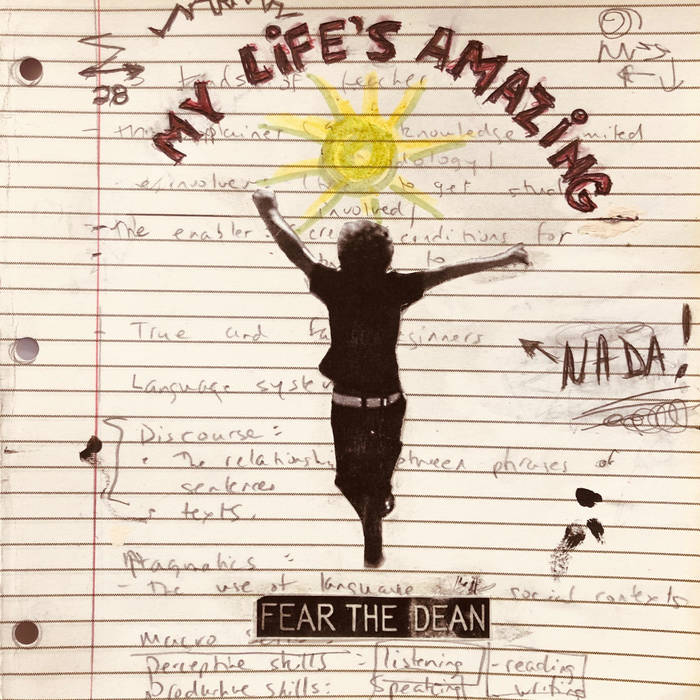 MY LIFE'S AMAZING
28
3 kinds of teacher
- the explainer knowledge limited
involver to get
involved)
- The enabler: conditions for
to
True and beginners
NADA!
Language
Discourse:
The relationship between phrases of
sentences
texts.
Pragmatics:
- The use of language social contexts
FEAR THE DEAN
Macro
Perceptive skills: listening - reading
Productive skills: Speaking writing